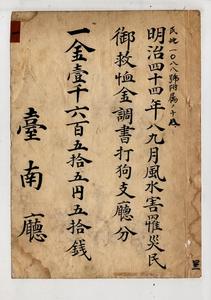 民地一〇八八號附屬ノ十五
明治四十四年八九月風水害罹災民
御救恤金調書打狗支廳分
一金壹千六百五拾五円五拾錢
臺南廳